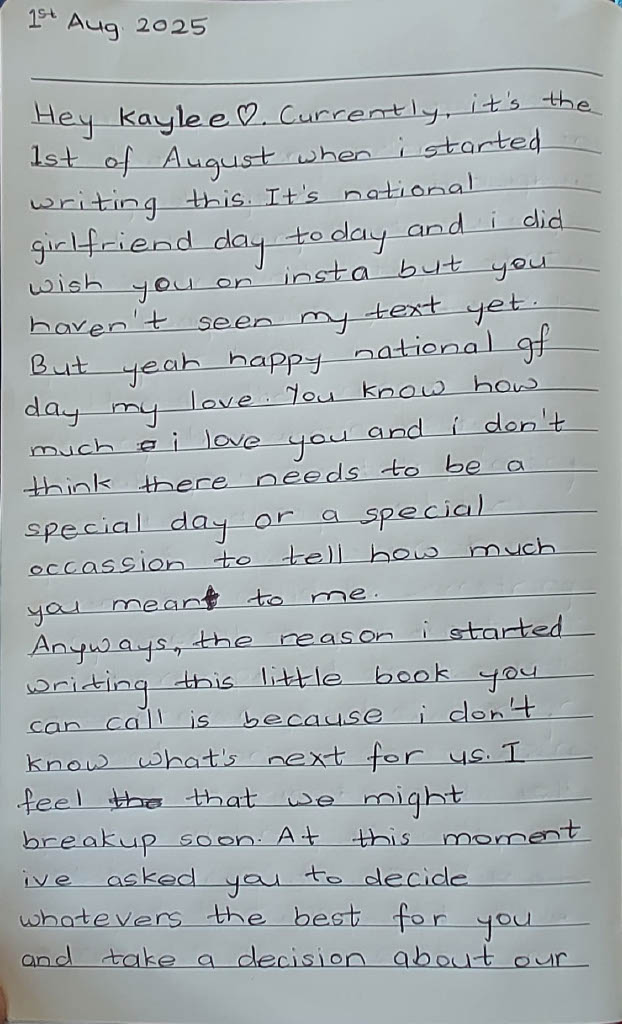 1st Aug. 2025
Hey Kaylee♡. Currently, it's the
1st of August when i started
writing this. It's national
girlfriend day today and i did
wish you on insta but you
haven't seen my text yet.
But yeah happy national gf
day my love. You know how
much i love you and i don't
think there needs to be a
special day or a special
occassion to tell how much
you meant to me.
Anyways, the reason i started
writing this little book you
can call is because i don't
know what's next for us. I
feel the that we might
breakup soon. At this moment
ive asked you to decide
whatevers the best for you
and take a decision about our